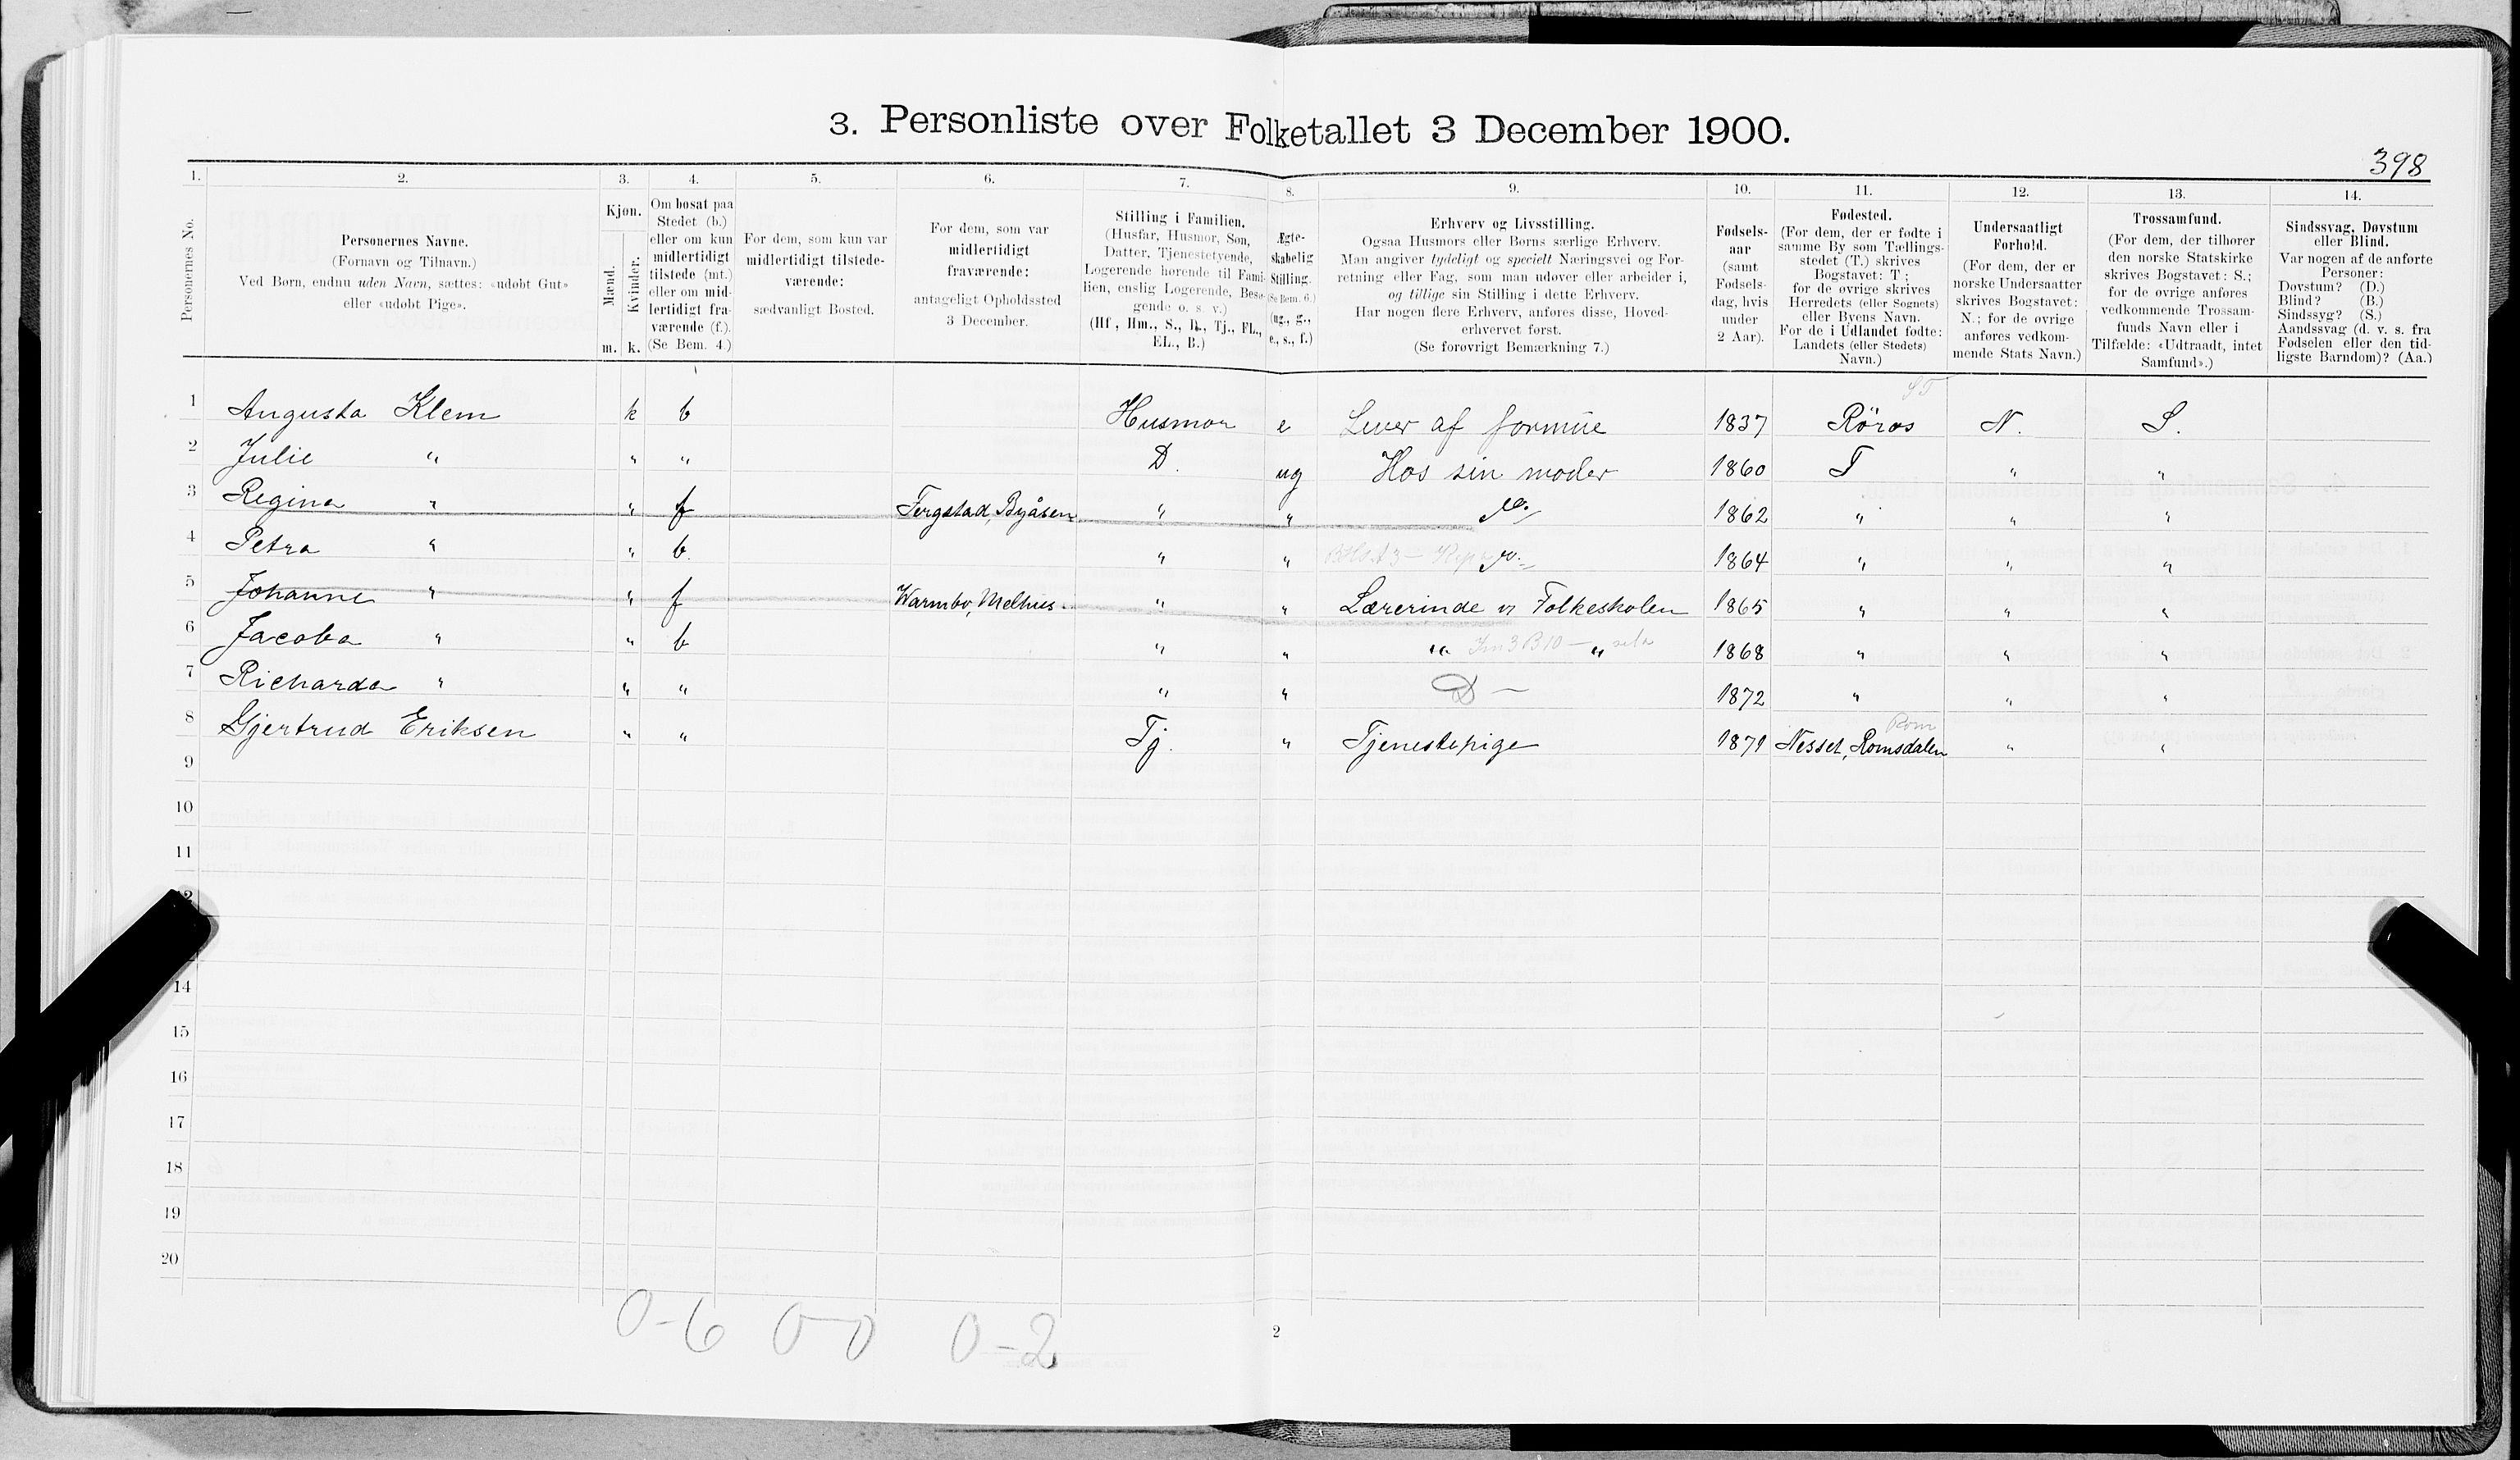 3. Personliste over Folketallet 3 December 1900.
398
1. 2. 3. 4. 5. 6. 7. 8. 9. 10. 11. 12. 13. 14.
Personernes No.
Personernes Navne.
(Fornavn og Tilnavn.)
Ved Børn, endnu uden Navn, sættes: «udøbt Gut»
eller «udøbt Pige».
Kjøn.
Mænd.
Kvinder.
m. k.
Om bosat paa
Stedet (b.)
eller om kun
midlertidigt
tilstede (mt.)
eller om mid-
lertidigt fra-
værende (f.).
(Se Bem. 4.)
For dem, som kun var
midlertidigt tilstede-
værende:
sædvanligt Bosted.
For dem, som var
midlertidigt
fraværende:
antageligt Opholdssted
3 December.
Stilling i Familien.
(Husfar, Husmor, Søn,
Datter, Tjenestetyende,
Logerende hørende til Fami-
lien, enslig Logerende, Besø-
gende o. s. v.)
(Hf., Hm., S., D., Tj., FL.,
EL., B.)
Ægte-
skabelig
Stilling.
(Se Bem. 6.)
(ug., g.,
e., s., f.)
Erhverv og Livsstilling.
Ogsaa Husmors eller Børns særlige Erhverv.
Man angiver tydeligt og specielt Næringsvei og For-
retning eller Fag, som man udøver eller arbeider i,
og tillige sin Stilling i dette Erhverv.
Har nogen flere Erhverv, anføres disse, Hoved-
erhvervet først.
(Se forøvrigt Bemærkning 7.)
Fødsels-
aar
(samt
Fødsels-
dag, hvis
under
2 Aar).
Fødested.
(For dem, der er fødte i
samme By som Tællings-
stedet (T.) skrives
Bogstavet: T;
for de øvrige skrives
Herredets (eller Sognets)
eller Byens Navn.
For de i Udlandet fødte:
Landets (eller Stedets)
Navn.)
Undersaatligt
Forhold.
(For dem, der er
norske Undersaatter
skrives Bogstavet:
N.; for de øvrige
anføres vedkom-
mende Stats Navn.)
Trossamfund.
(For dem, der tilhører
den norske Statskirke
skrives Bogstavet: S.;
for de øvrige anføres
vedkommende Trossam-
funds Navn eller i
Tilfælde: «Udtraadt, intet
Samfund».)
Sindssvag, Døvstum
eller Blind.
Var nogen af de anførte
Personer:
Døvstum? (D.)
Blind? (B.)
Sindssyg? (S.)
Aandssvag (d. v. s. fra
Fødselen eller den tid-
ligste Barndom)? (Aa.)
ST
1 Augusta Klem k b Husmor e Lever af formue 1837 Röros N. S.
2 Julie " " " D. ug Hos sin moder 1860 T " "
3 Regina " " f Fergstad, Byåsen " " 1862 " " "
4 Petra " " b. " " 1864 " " "
5 Johanne " " f Warmbo, Melhus " " Lærerinde v Folkeskolen 1865 " " "
6 Jacoba " " b " " " " 1868 " " "
7 Richarda " " " " " D — 1872 " " "
Rom
8 Gjertrud Eriksen " " Tj. " Tjenestepige 1871 Nesset, Romsdalen " "
9
10
11
12
14
15
16
17
18
19
20
0-6 0-0 0-2
2